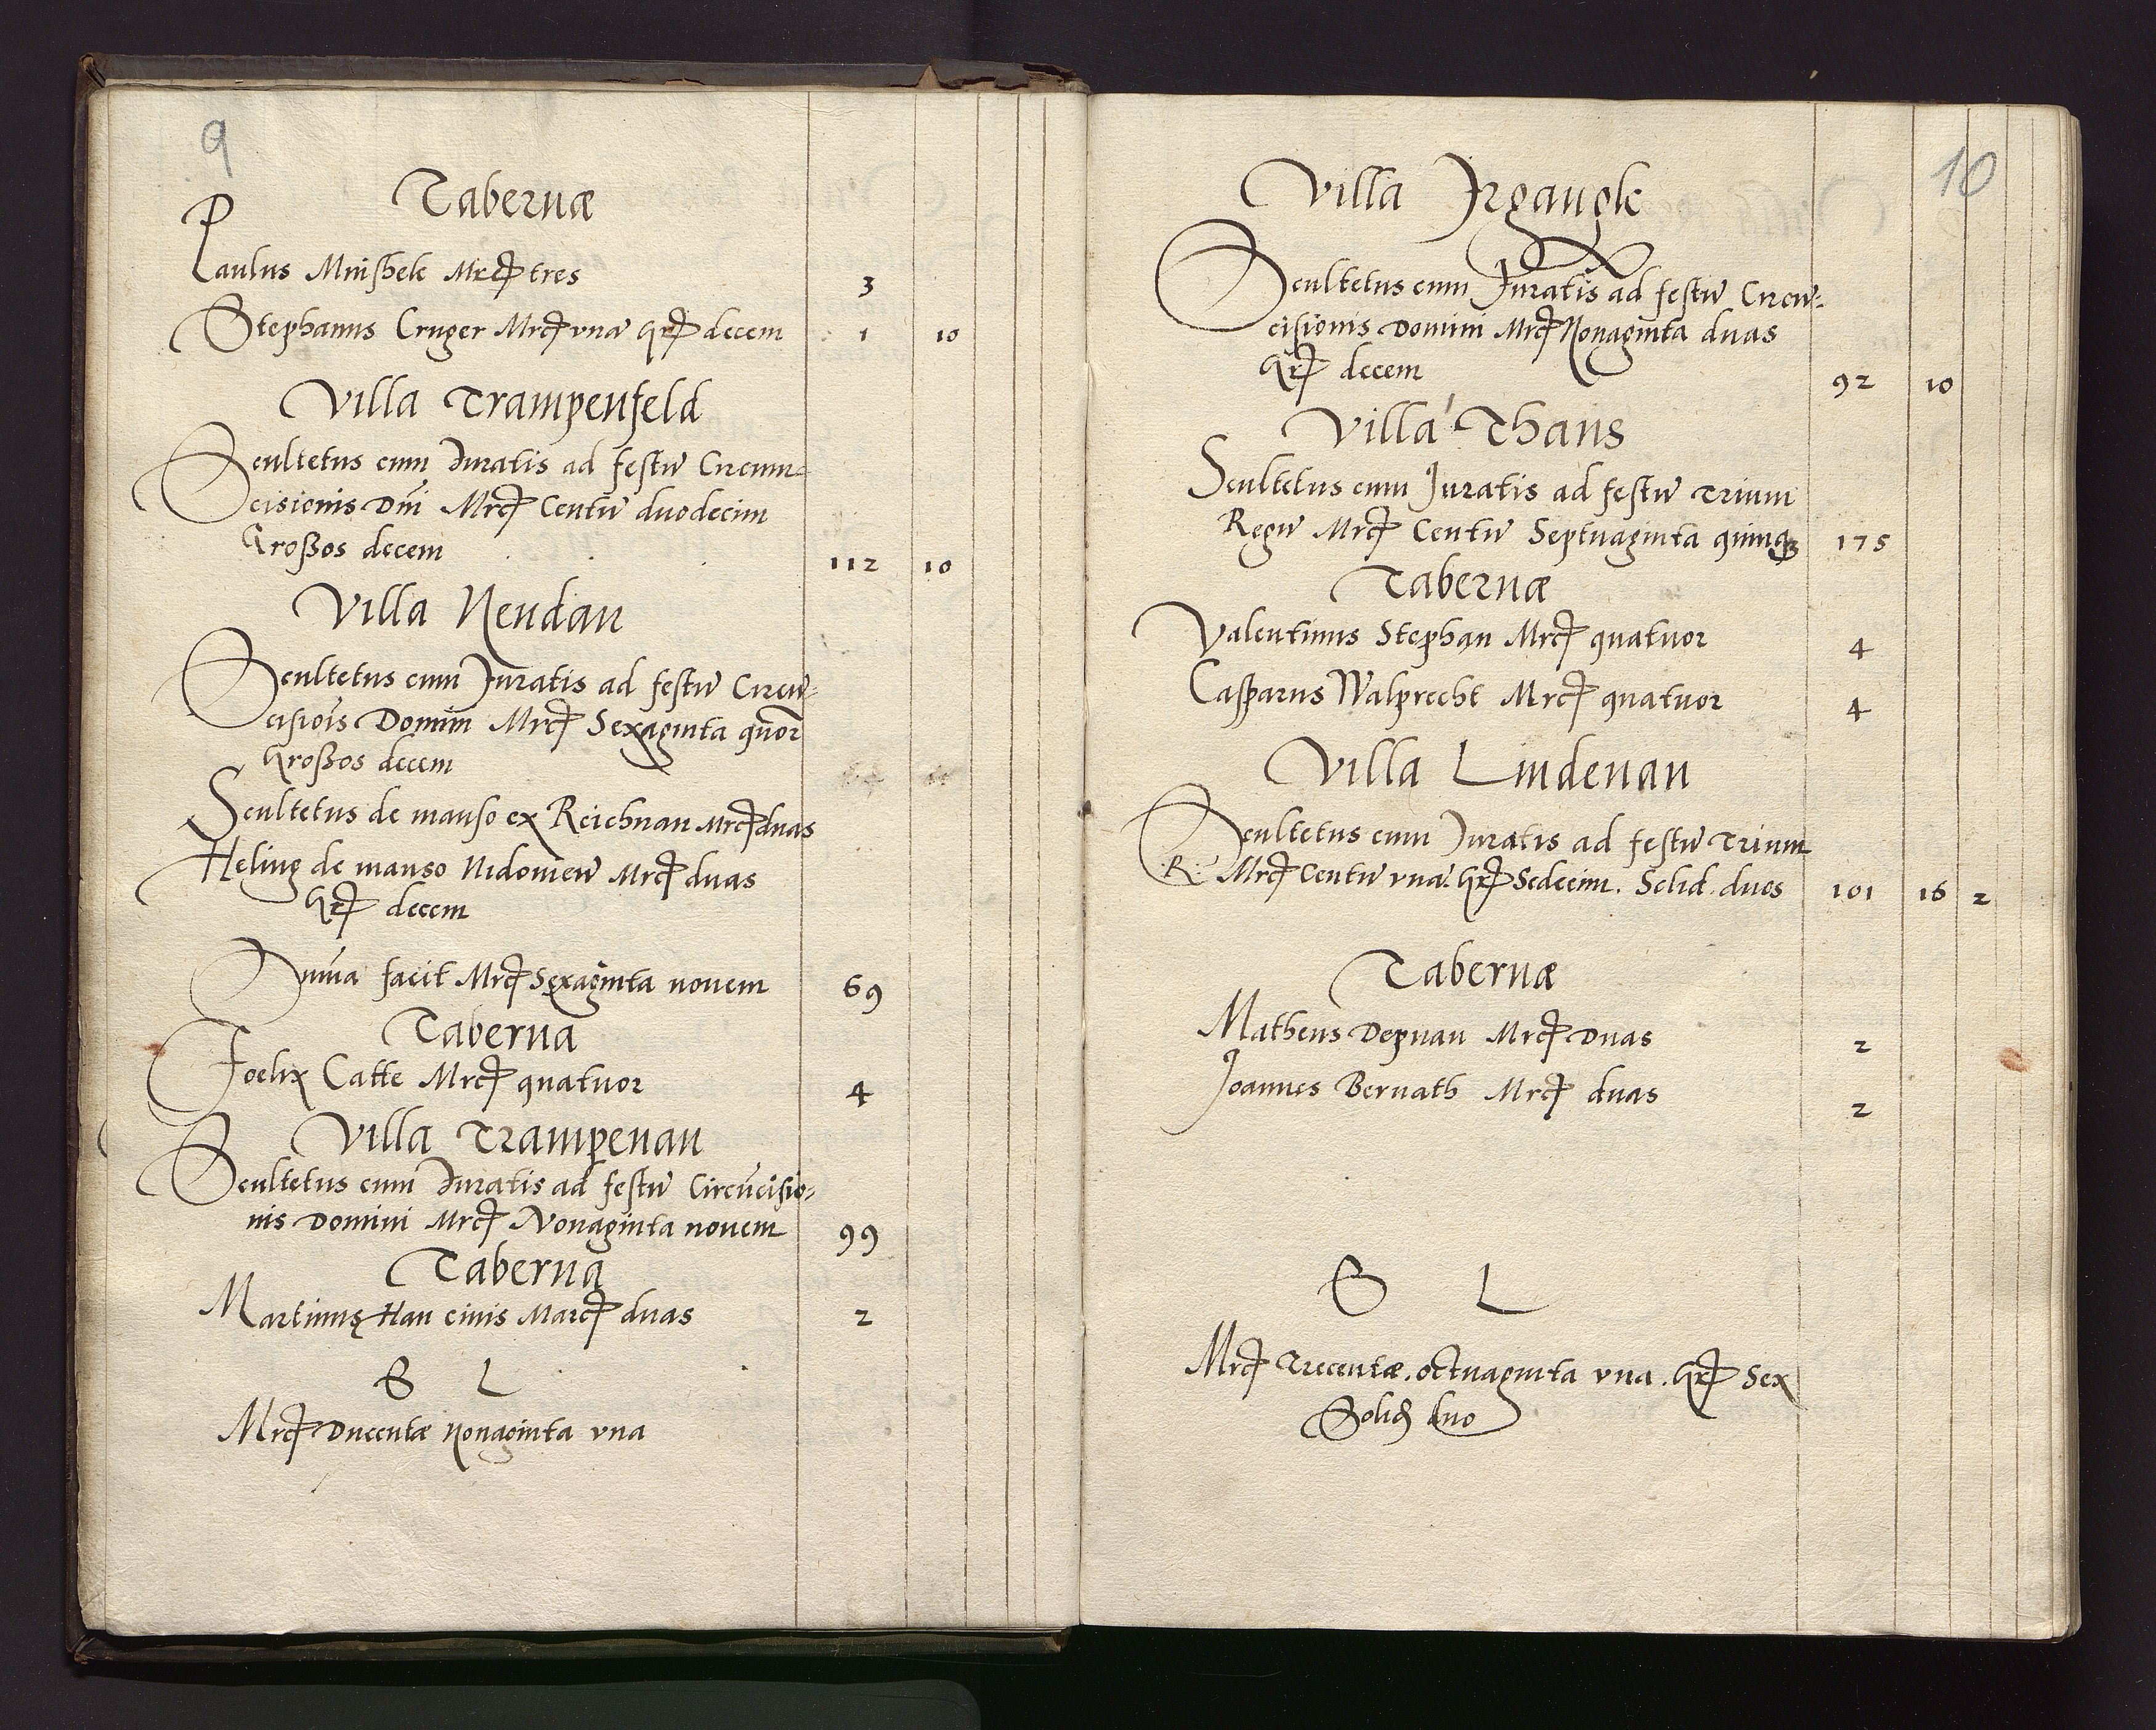 9
Tabernæ
Paulus Mnishek Mrcę tres 3
Stephanus Cruger Mrcę vnā Grę decem 1 10
Villa Trampenfeld
Scultetus cum Juratis ad festū Circum=
cisionis Dni Mrcę Centū duodecim
Großos decem 112 10
Villa Nendau
Scultetus cum Juratis ad festū Circū=
cisiois Domini Mrcę Sexaginta quōr
Großos decem
Scultetus de manso ex Reichnau Mrcę duas
Heling de manso Mrcę duas
Grę decem
Suma facit Mrcę Sexaginta nouem 69
Taberna
Foelix Catte Mrcę quatuor 4
Villa Trampenau
Scultetus cum Juratis ad festū Circūcisio=
nis Domini Mrcę Nonaginta nouem 99
Taberna
Martinus Han ciuis Marcę duas 2
S L
Mrcę Ducentæ Nonaginta vna
10
Villa Irgangk
Scultetus cum Juratis ad festū Circū=
cisionis Domini Mrcę Nonaginta duas
Grę decem 92 10
Villa Thans
Scultetus cum Juratis ad festū Trium
Regū Mrcę Centū Septuaginta quinqȝ 175
Tabernæ
Valentinus Stephan Mrcę quatuor 4
Casparus Walprecht Mrcę quatuor 4
Villa Lindenau
Scultetus cum Juratis ad festū Trium
.R. Mrcę Centū vnā. Grę Sedecim. Solid. duos 101 16 2
Tabernæ
Matheus Depnau Mrcę Duas 2
Joannes Bernath Mrcę duas 2
S L
Mrcę Trecentæ. octuaginta vna. Grę Sex
Solid duo